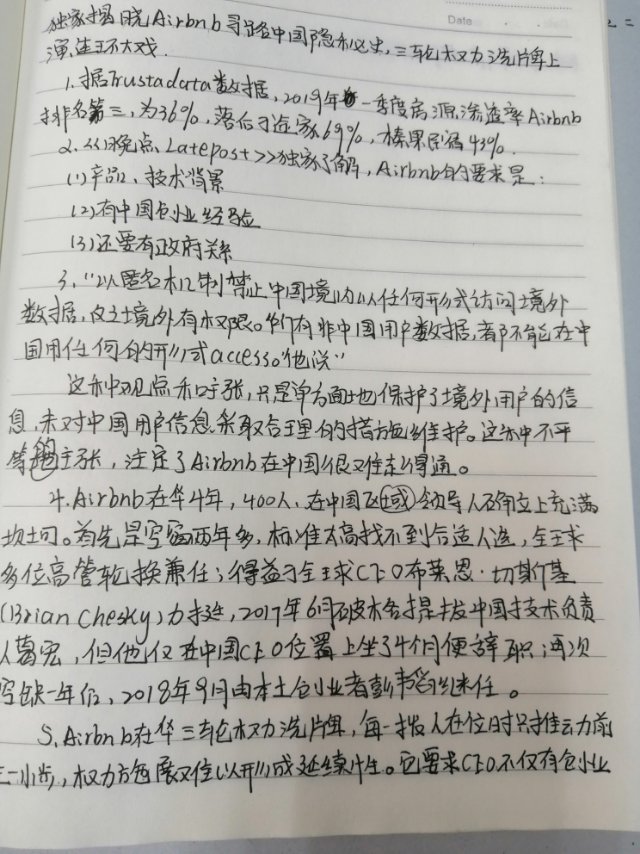 Date
独家揭晓Airbnb寻路中国隐秘史，三轮权力洗牌上
演连环大戏.
1.据Trustadata数据,2019年一季度房源渗透率Airbnb
排名第三,为36%,落后于途家69%,榛果民宿43%.
2.《晚点Latepost》独家了解,Airbnb的要求是:
(1)产品、技术背景
(2)有中国创业经验
(3)还要有政府关系
3."以匿名机制禁止中国境内以任何形式访问境外
数据,仅境外有权限。所有非中国用户数据,都不能在中
国用任何的形式access。他说"
这种观点和主张,只是单方面地保护了境外用户的信
息,未对中国用户信息采取合理的措施维护。这种不平
等的主张,注定了Airbnb在中国很难走得通。
4.Airbnb在华4年,400人,在中国区域领导人确立上充满
坎坷。首先是空窗两年多,标准太高找不到合适人选,全球
多位高管轮换兼任;得益于全球CEO布莱恩·切斯基
(Brian Chesky)力挺,2017年6月破格提拔中国技术负责
人葛宏,但他仅在中国CEO位置上坐了4个月便辞职;再次
空缺一年后,2018年9月由本土创业者彭韬继任。
5.Airbnb在华三轮权力洗牌,每一拨人在位时只推动力前
一小步,权力方面展又难以形成延续性。它要求CEO不仅有创业